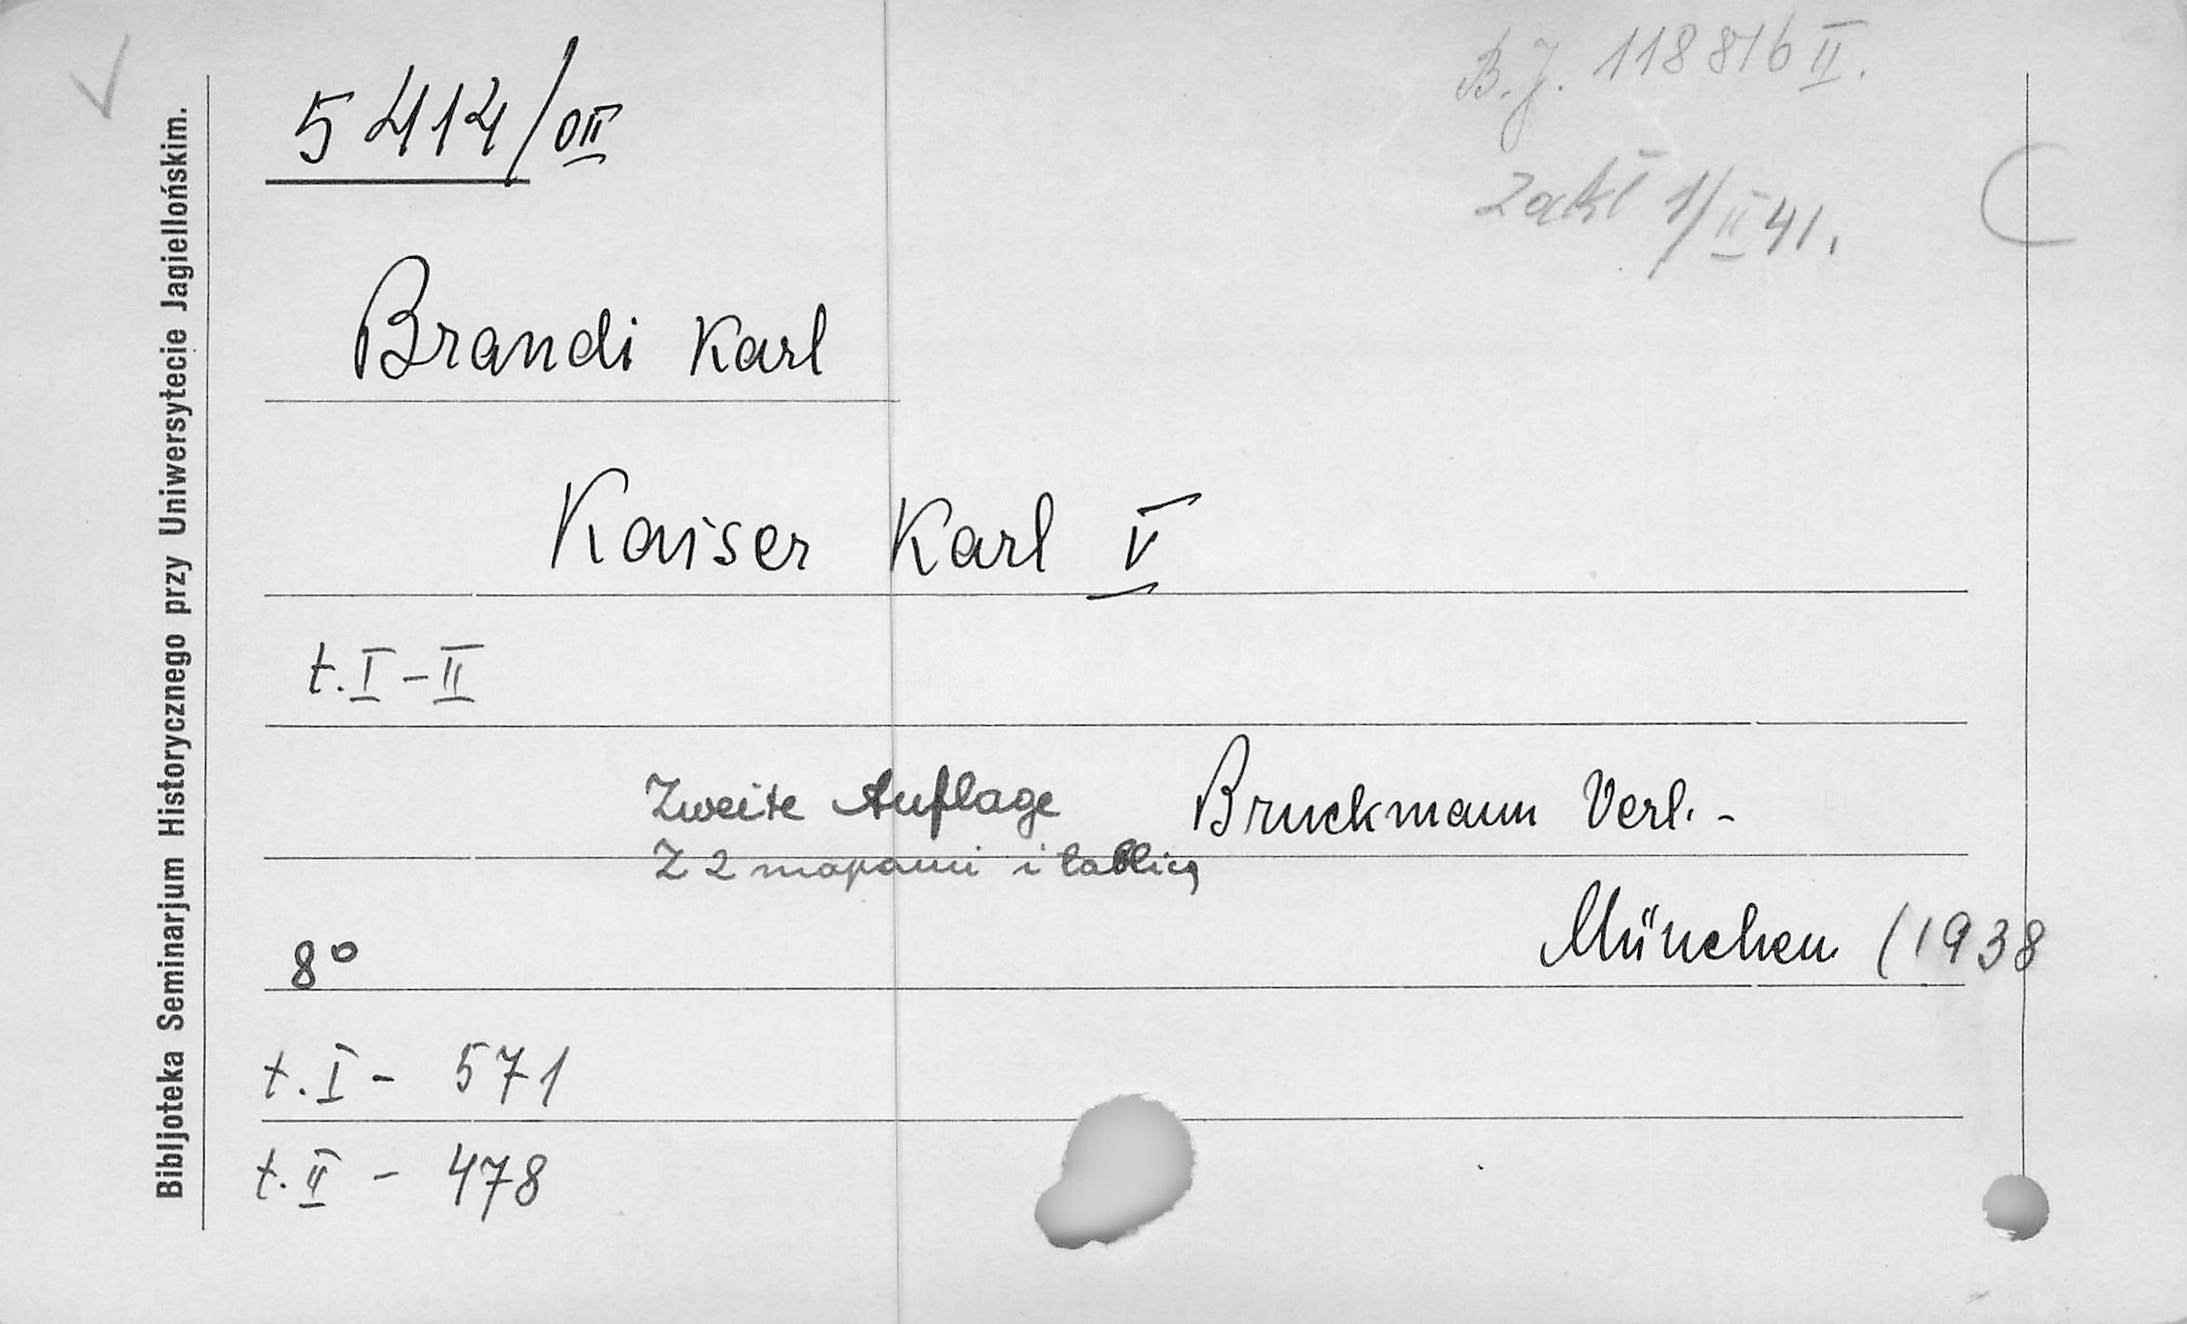 5414/OII
B.J. 118816 II.
Zakł 1/II 41.
Brandi Karl
Kaiser Karl V
t. I - II
Zweite Auflage Bruckmann Verl. -
Z 2 mapami i tablicą
München (1938
8°
t. I - 571
t. II - 478
Bibljoteka Seminarjum Historycznego przy Uniwersytecie Jagiellońskim.